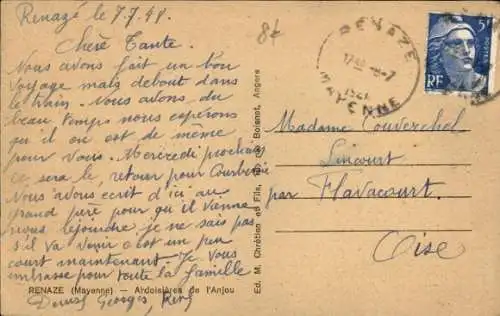 Renazé le 7.7.48.
Chère Tante.
Nous avons fait un bon
voyage mais debout dans
le train. Nous avons du
beau temps nous espérons
qu'il en est de même
pour vous. Mercredi prochain
ce sera le retour pour Courbevoie
Nous avons écrit d'ici au
grand père pour qu'il vienne
nous rejoindre je ne sais pas
s'il va venir c'est un peu
court maintenant. Je vous
embrasse pour toute la famille
RENAZE (Mayenne) — Ardoisières de l'Anjou
Denise Georges,
Ed. M. Chrétien et Fils, Bd de Boisnet, Angers
8f
RENAZÉ
MAYENNE
5F
POSTES
RF
Madame Couverchel
Lincourt
par Flavacourt.
Oise